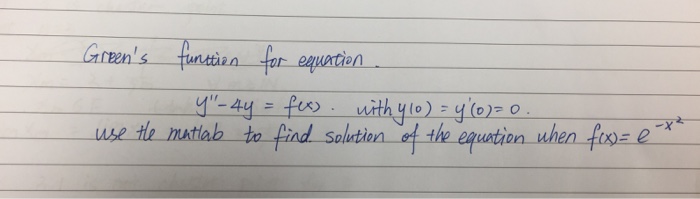 Green's funttion for equation.
y"-4y = f(x). with y(0) = y'(0)= 0.
use the matlab to find solution of the equation when f(x)= e^-x²